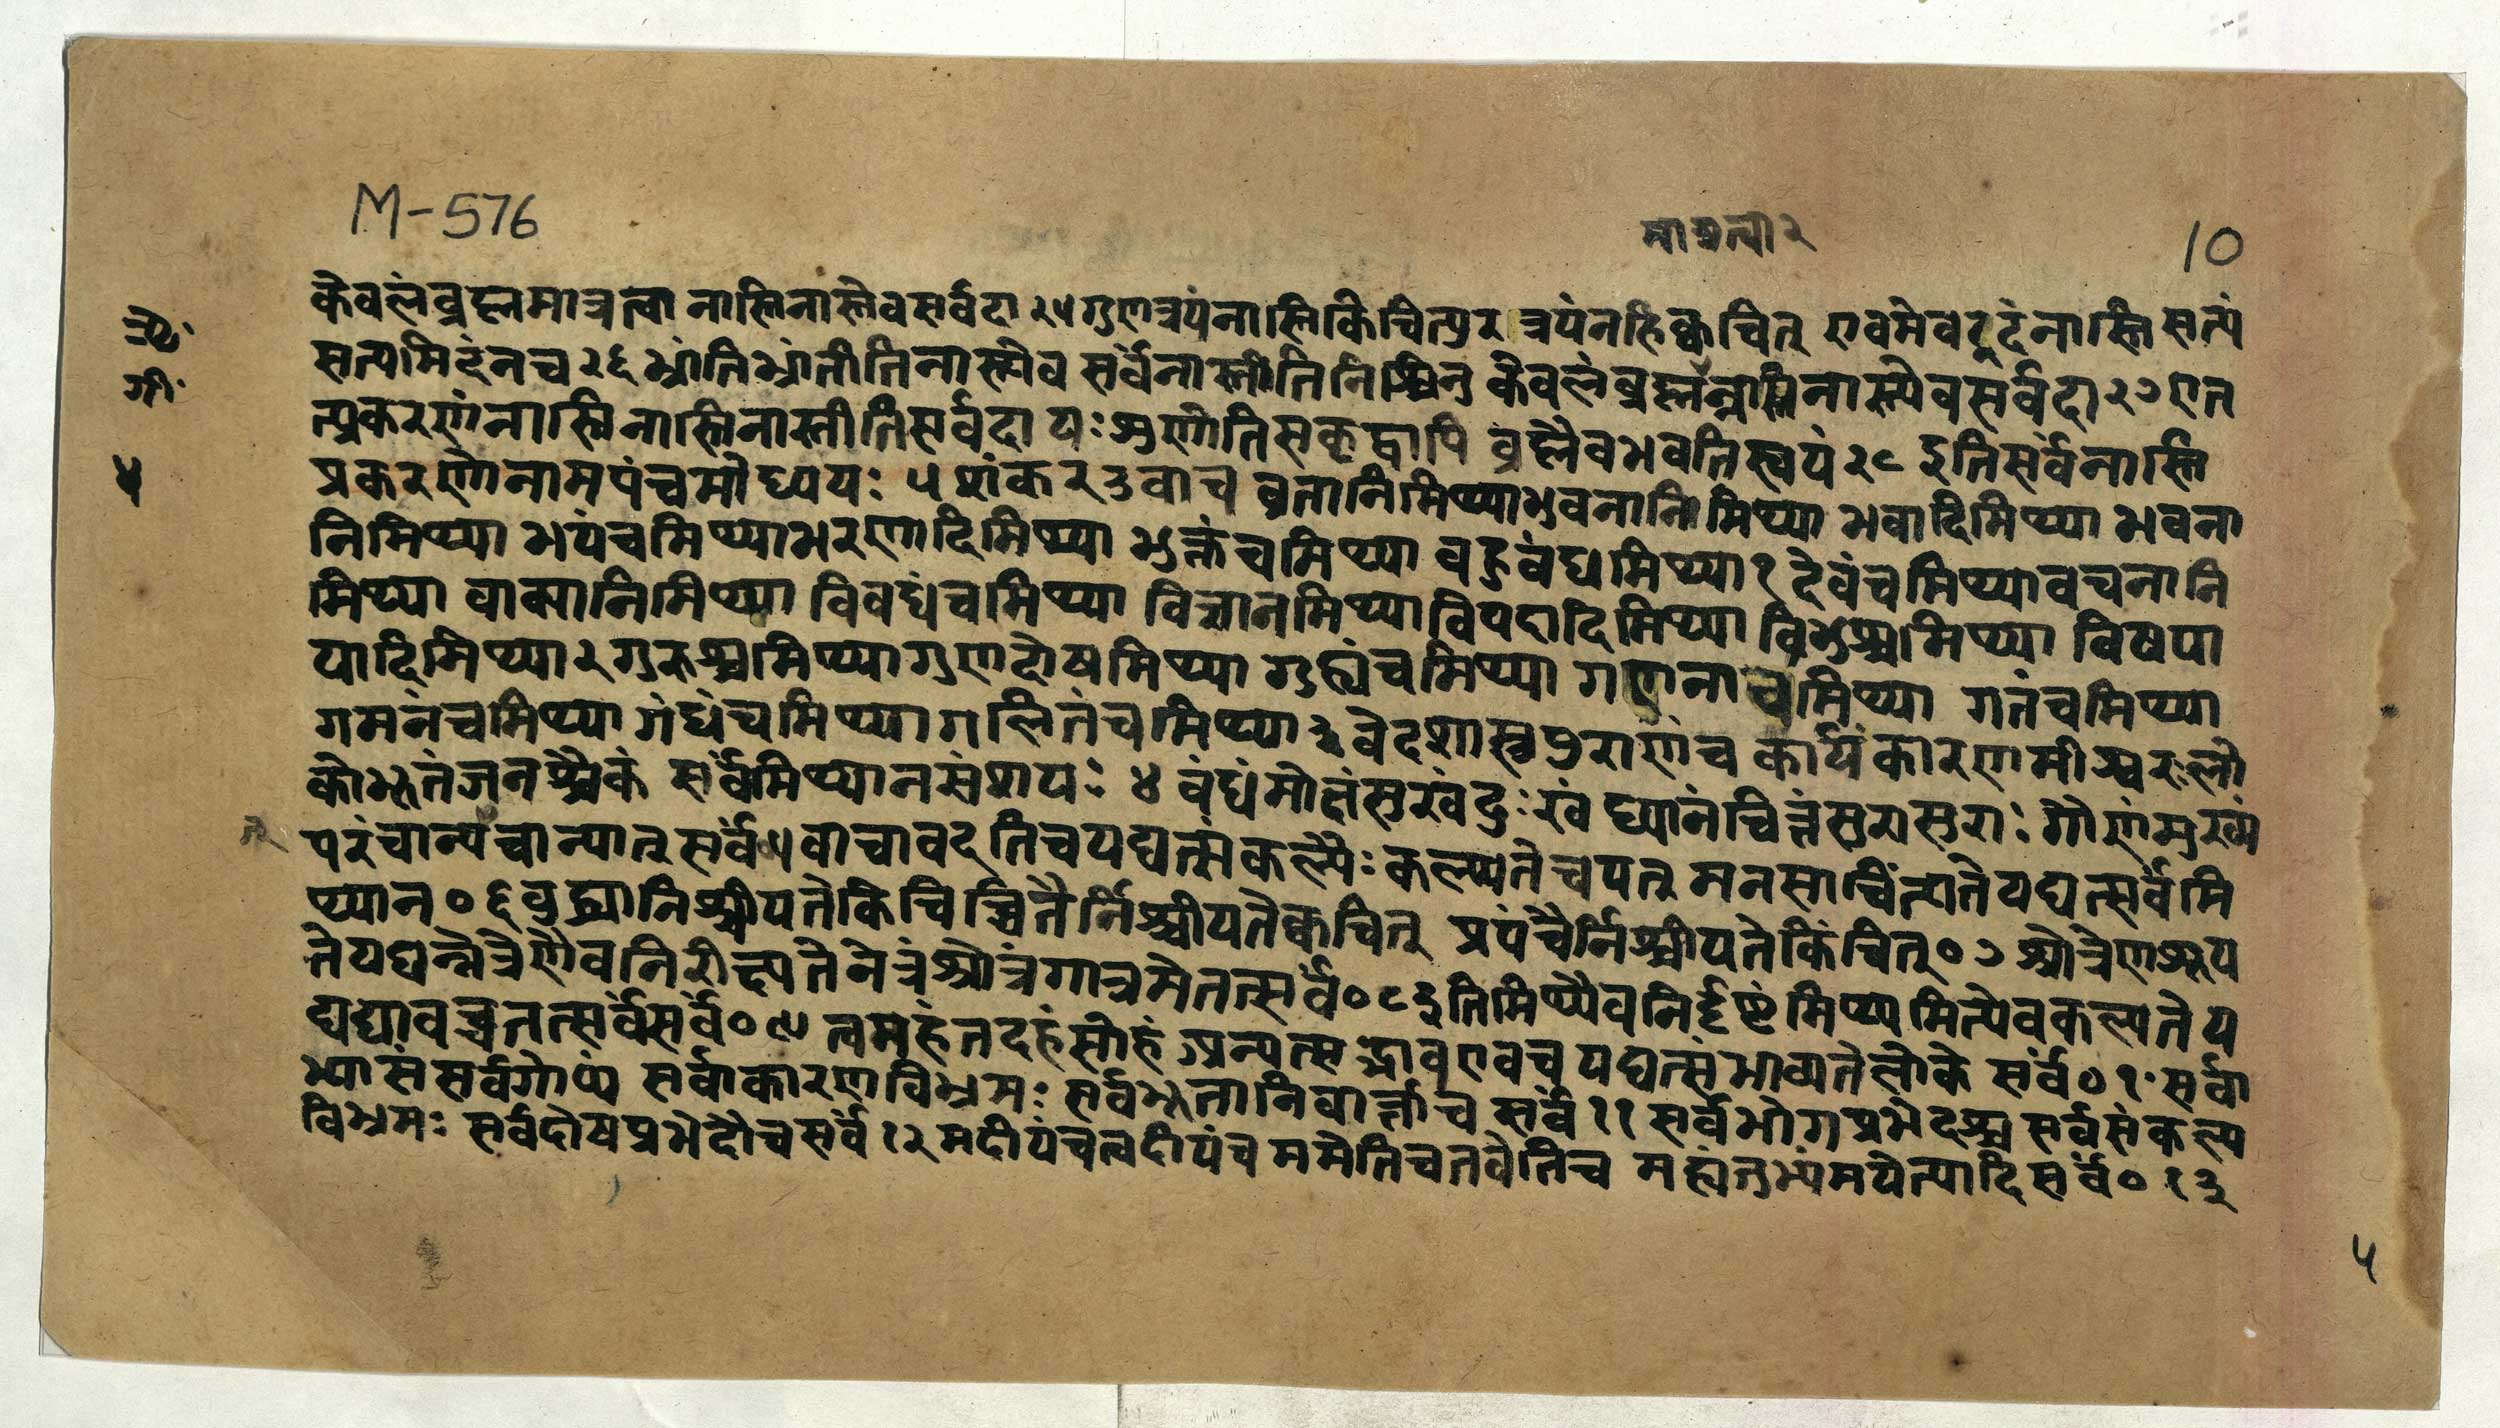 M-576
10
ऋ॰
गी॰
५
केवलंब्रह्ममात्रत्वा नास्तिनास्त्येवसर्वदा २५ गुणत्रयंनास्तिकिंचित्पुर त्रयंनहिक्वचित् एवमेवदृढंनास्ति सत्यं
सत्यमिदंनच २६ भ्रांतिभ्रांतीतिनास्त्येव सर्वंनास्तीतिनिश्चितु केवलंब्रह्मन्नास्तिनास्त्येवसर्वदा २७ एत
त्प्रकरणंनास्तिनास्तिनास्तीतिसर्वदा यः शृणोतिसकृद्वापि ब्रह्मैवभवतिस्वयं २८ इतिसर्वंनास्ति
प्रकरणोनामपंचमोध्ययः ५ शंकरउवाच व्रतानिमिथ्याभुवनानिमिथ्या भवादिमिथ्या भवना
निमिथ्या भयंचमिथ्याभरणादिमिथ्या भुक्तंचमिथ्या बहुबंधमिथ्या १ देवंचमिथ्यावचनानि
मिथ्या वाक्यानिमिथ्या विवधंचमिथ्या विज्ञानमिथ्याविपदादिमिथ्या विभुश्चमिथ्या विषया
यादिमिथ्या २ गुरुश्चमिथ्यागुणदोषमिथ्या गुह्यंचमिथ्या गणनाचमिथ्या गतंचमिथ्या
गमनंचमिथ्या गंधंचमिथ्यागलितंचमिथ्या ३ वेदशास्त्रपुराणंच कार्यंकारणमीश्वरःलो
कोभूतंजनश्चैकं सर्वंमिथ्यानसंशयः ४ बंधंमोक्षंसुखंदुःखं ध्यानंचित्तंसुरासुराः गौणंमुख्यं
परंचान्यंचान्यातु सर्वं॰५ वाचावदतिचयद्यत्संकल्पैः कल्प्यतेचयत् मनसाचिंत्यतेयद्यत्सर्वंमि
थ्यान॰ ६ बुद्ध्यानिश्चीयतेकिंचिच्चितैर्निश्चीयतेक्वचित् प्रपंचैर्निश्चीयतेकिंचित्॰ ७ श्रोत्रेणश्रूय
तेयद्यन्नेत्रेणैवनिरीक्ष्यतेनेत्रंश्रोत्रंगात्रमेतत्सर्वं॰८ इतिमिथ्यैवनिर्दृष्टंमिथ्यमित्येवकल्पतेय
द्यद्यावच्चतत्सर्वंसर्वं॰९ त्वमहंतदहंसोहं अन्यत्सद्भावएवच यद्यत्संभाव्यतेलोके सर्वं०१॰ सर्वा
भ्यासंसर्वगोप्यं सर्वाकारणविभ्रमः सर्वभूतानिवार्त्ताच सर्वं ११ सर्वभोगप्रभेदश्च सर्वसंकल्प
विभ्रमः सर्वदोषप्रभेदौचसर्वं १२ मदीयंचत्वदीयंच ममेतिचतवेतिच मह्यंतुभ्यंमयेत्यादिसर्वं॰ १३
५